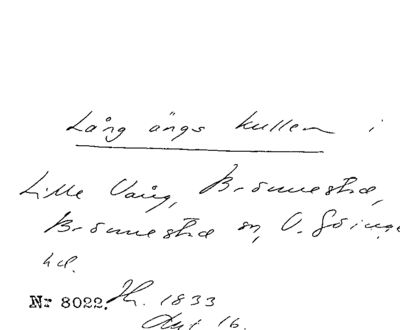 Lång ängs kullen i
Lille Vång, Brönnestad,
Brönnestad sn, V. Göinge
hd.
Nr 8022. Hr. 1833
Akt 16.